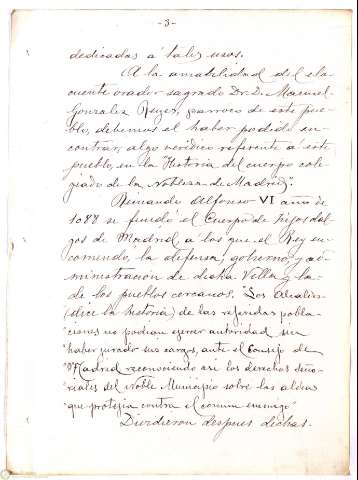 -3-
dedicadas á tales usos.
A la amabilidad del elo
cuente orador sagrado Dr. D. Manuel
Gonzalez Reyes, parroco de este pue-
blo, debemos el haber podido en-
contrar, algo verídico referente á este
pueblo, en la "Historia del cuerpo cole
giado de la Nobleza de Madrid".
Reinando Alfonso VI año de
1088 se fundó el Cuerpo de hijosdal
gos de Madrid, á los que el Rey en-
comendó, la defensa, gobierno y ad-
ministracion de dicha Villa y la
de los pueblos cercanos. "Los Alcaldes
(dice la historia) de las referidas pobla-
"ciones no podian ejercer autoridad sin
"haber jurado sus cargos, ante el Consejo de
"Madrid reconociendo así los derechos seño-
"riales del Noble Municipio sobre las aldeas
"que protejia contra el comun enemigo"
Dividieron despues dichas.